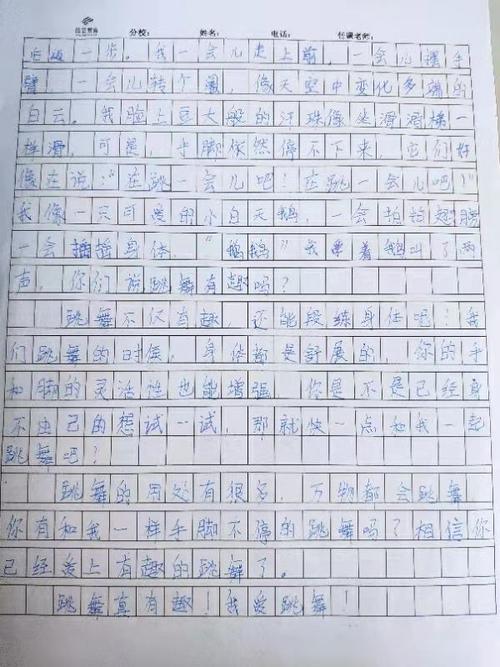 分校： 姓名： 电话： 任课老师：
一步。我一会儿走上前，一会儿摆手
臂，一会儿转个圈，像天空中变化多端的
白云。我脸上豆大般的汗珠像坐滑滑梯一
样滑，可是，手脚依然停不下来，它们好
像在说：“在跳一会儿吧！在跳一会儿吧！”
我像一只可爱的小白天鹅，一会拍拍翅膀
一会摇摇身体，“鹅鹅”我学着鹅叫了两
声。你们说跳舞有趣吗？
跳舞不仅有趣，还能段练身体呢！我
们跳舞的时候，身体都是舒展的，你的手
和脚的灵活性也能增强。你是不是已经身
不由己的想试一试，那就快一点和我一起
跳舞吧？
跳舞的用处有很多，万物都会跳舞
你有和我一样手脚不停的跳舞吗？相信你
已经爱上有趣的跳舞了。
跳舞真有趣！我爱跳舞！